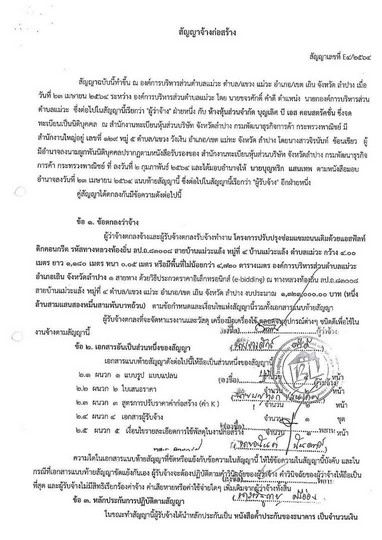 สัญญาจ้างก่อสร้าง
สัญญาเลขที่ E๔/๒๕๖๔
สัญญาฉบับนี้ทำขึ้น ณ องค์การบริหารส่วนตำบลแม่วะ ตำบล/แขวง แม่วะ อำเภอ/เขต เถิน จังหวัด ลำปาง เมื่อ
วันที่ ๒๓ เมษายน ๒๕๖๔ ระหว่าง องค์การบริหารส่วนตำบลแม่วะ โดย นายขจรศักดิ์ คำดี ตำแหน่ง นายกองค์การบริหารส่วน
ตำบลแม่วะ ซึ่งต่อไปในสัญญานี้เรียกว่า "ผู้ว่าจ้าง" ฝ่ายหนึ่ง กับ ห้างหุ้นส่วนจำกัด บุญเลิศ บี เอส คอนสตรัคชั่น ซึ่งจด
ทะเบียนเป็นนิติบุคคล ณ สำนักงานทะเบียนหุ้นส่วนบริษัท จังหวัดลำปาง กรมพัฒนาธุรกิจการค้า กระทรวงพาณิชย์ มี
สำนักงานใหญ่อยู่ เลขที่ ๑๒๙ หมู่ ๕ ตำบล/แขวง วังเงิน อำเภอ/เขต แม่ทะ จังหวัด ลำปาง โดยนางสาวจิรนันท์ ผู้
มีอำนาจลงนามผูกพันนิติบุคคลปรากฏตามหนังสือรับรองของ สำนักงานทะเบียนหุ้นส่วนบริษัท จังหวัดลำปาง กรมพัฒนาธุรกิจ
การค้า กระทรวงพาณิชย์ ที่ ลงวันที่ ๒ กุมภาพันธ์ ๒๕๖๔ และได้มอบอำนาจให้ นายบุญทริก แสนเทพ ตามหนังสือมอบ
อำนาจลงวันที่ ๒๓ เมษายน ๒๕๖๔ แนบท้ายสัญญานี้ ซึ่งต่อไปในสัญญานี้เรียกว่า "ผู้รับจ้าง" อีกฝ่ายหนึ่ง
คู่สัญญาได้ตกลงกันมีข้อความดังต่อไปนี้
ข้อ ๑. ข้อตกลงว่าจ้าง
ผู้ว่าจ้างตกลงจ้างและผู้รับจ้างตกลงรับจ้างทำงาน โครงการปรับปรุงซ่อมแซมถนนเดิมด้วยแอสฟัลท์
ติกคอนกรีต รหัสทางหลวงท้องถิ่น ลป.ถ. สายบ้านแม่วะแล้ง หมู่ที่ ๔ บ้านแม่วะแล้ง ตำบลแม่วะ กว้าง ๔.๐๐
เมตร ยาว ๑,๑๘๐ เมตร หนา ๐.๐๕ เมตร หรือมีพื้นที่ไม่น้อยกว่า ๔,๗๒๐ ตารางเมตร องค์การบริหารส่วนตำบลแม่วะ
อำเภอเถิน จังหวัดลำปาง ๑ สายทาง ด้วยวิธีประกวดราคาอิเล็กทรอนิกส์ (e-bidding) ณ ทางหลวงท้องถิ่น
สายบ้านแม่วะแล้ง หมู่ที่ ๔ บ้านแม่วะแล้ง ตำบล/แขวง แม่วะ อำเภอ/เขต เถิน จังหวัด ลำปาง งบประมาณ (หนึ่ง
ล้าน) ตามข้อกำหนดและเงื่อนไขแห่งสัญญานี้รวมทั้งเอกสารแนบท้ายสัญญา
ผู้รับจ้างตกลงที่จะจัดหาแรงงานและวัสดุ เครื่องมือเครื่องใช้ ตลอดจนอุปกรณ์ต่างๆ ชนิดดีเพื่อใช้ใน
งานจ้างตามสัญญานี้
ข้อ ๒. เอกสารอันเป็นส่วนหนึ่งของสัญญา
เอกสารแนบท้ายสัญญาดังต่อไปนี้ให้ถือเป็นส่วนหนึ่งของสัญญานี้
๒.๑ ผนวก ๑ แบบรูป แบบแปลน
๒.๒ ผนวก ๒ ใบเสนอราคา จำนวน
๒.๓ ผนวก ๓ สูตรการปรับราคาค่าก่อสร้าง (ค่า K) จำนวน
๒.๔ ผนวก ๔ เอกสารผู้รับจ้าง จำนวน ๑ ชุด
๒.๕ ผนวก ๕ เงื่อนไขรายละเอียดการใช้พัสดุในงานก่อสร้าง จำนวน
ความใดในเอกสารแนบท้ายสัญญาที่ขัดหรือแย้งกับข้อความในสัญญานี้ ให้ใช้ข้อความในสัญญานี้บังคับ และใน
กรณีที่เอกสารแนบท้ายสัญญาขัดแย้งกันเอง ผู้รับจ้างจะต้องปฏิบัติตามคำวินิจฉัยของผู้ว่าจ้าง คำวินิจฉัยของผู้ว่าจ้างให้ถือเป็น
ที่สุด และผู้รับจ้างไม่มีสิทธิเรียกร้องค่าจ้าง ค่าเสียหายหรือค่าใช้จ่ายใดๆ เพิ่มเติมจากผู้ว่าจ้างทั้งสิ้น
ข้อ ๓. หลักประกันการปฏิบัติตามสัญญา
ในขณะทำสัญญานี้ผู้รับจ้างได้นำหลักประกันเป็น หนังสือค้ำประกันของธนาคาร เป็นจำนวนเงิน